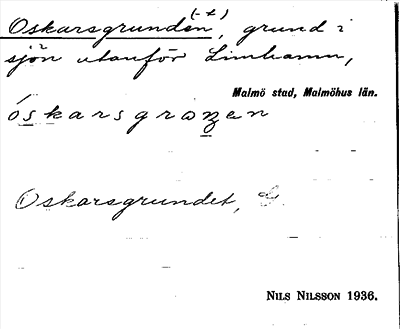 Oskarsgrunden (-t), grund i
sjön utanför Limhamn,
Malmö stad, Malmöhus län.
óskarsgrɷnen
Oskarsgrundet,
NILS NILSSON 1936.